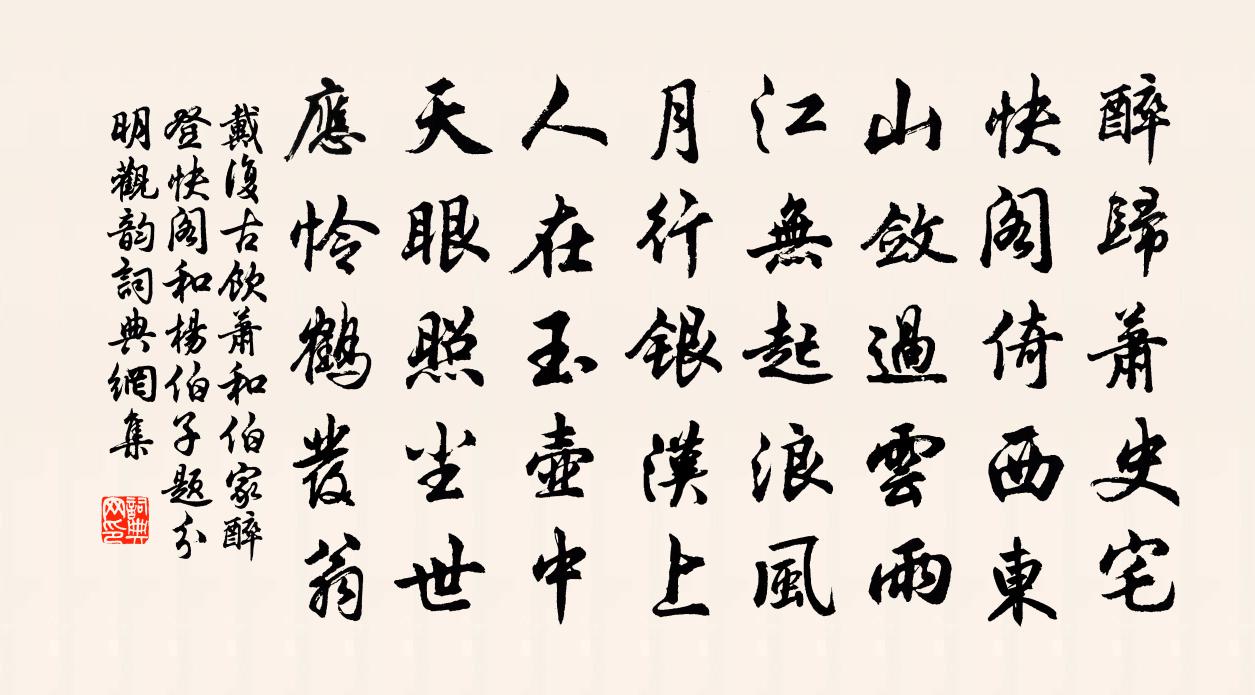 醉歸蕭史宅
快閣倚西東
山斂過雲雨
江無起浪風
月行銀漢上
人在玉壺中
天眼照塵世
應怜鶴發翁
戴復古飲蕭和伯家醉
登快閣和楊伯子題分
明觀韵詞典網集
詞典網印